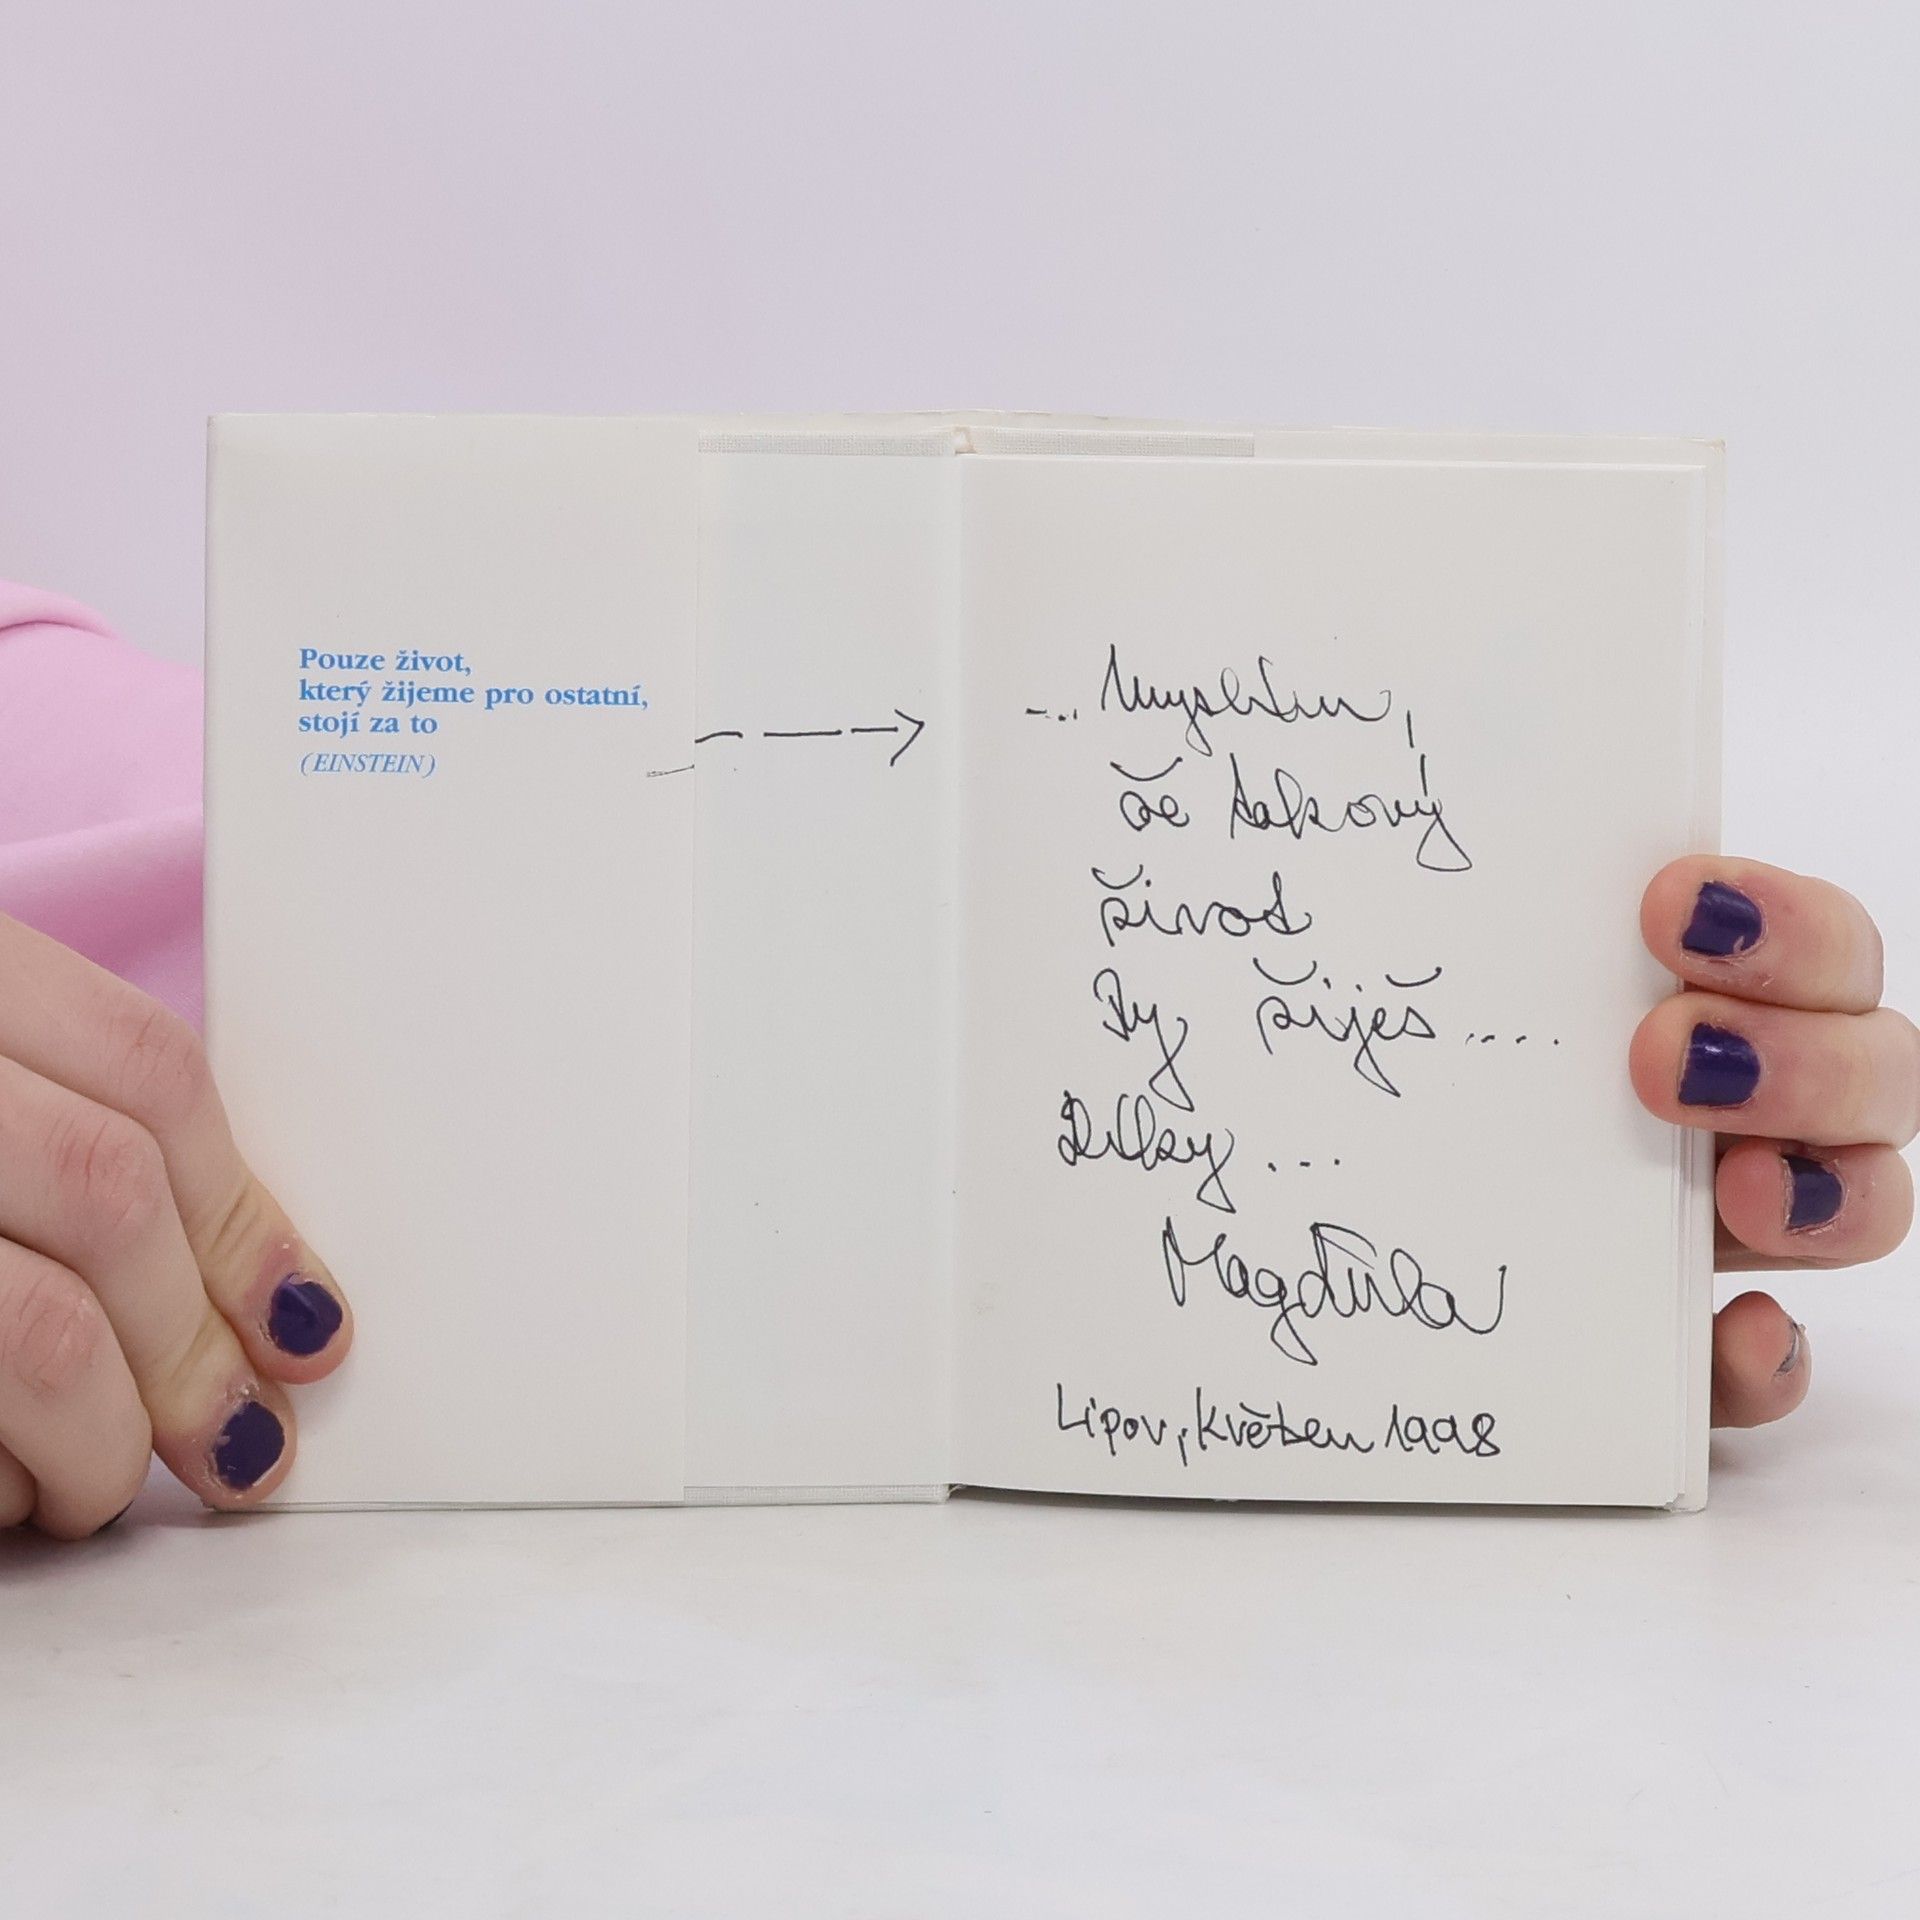 Pouze život,
který žijeme pro ostatní,
stojí za to
(EINSTEIN)
... Myslím,
že takový
život
Ty žiješ ....
Díky ...
Magdula
Lipov, květen 1998